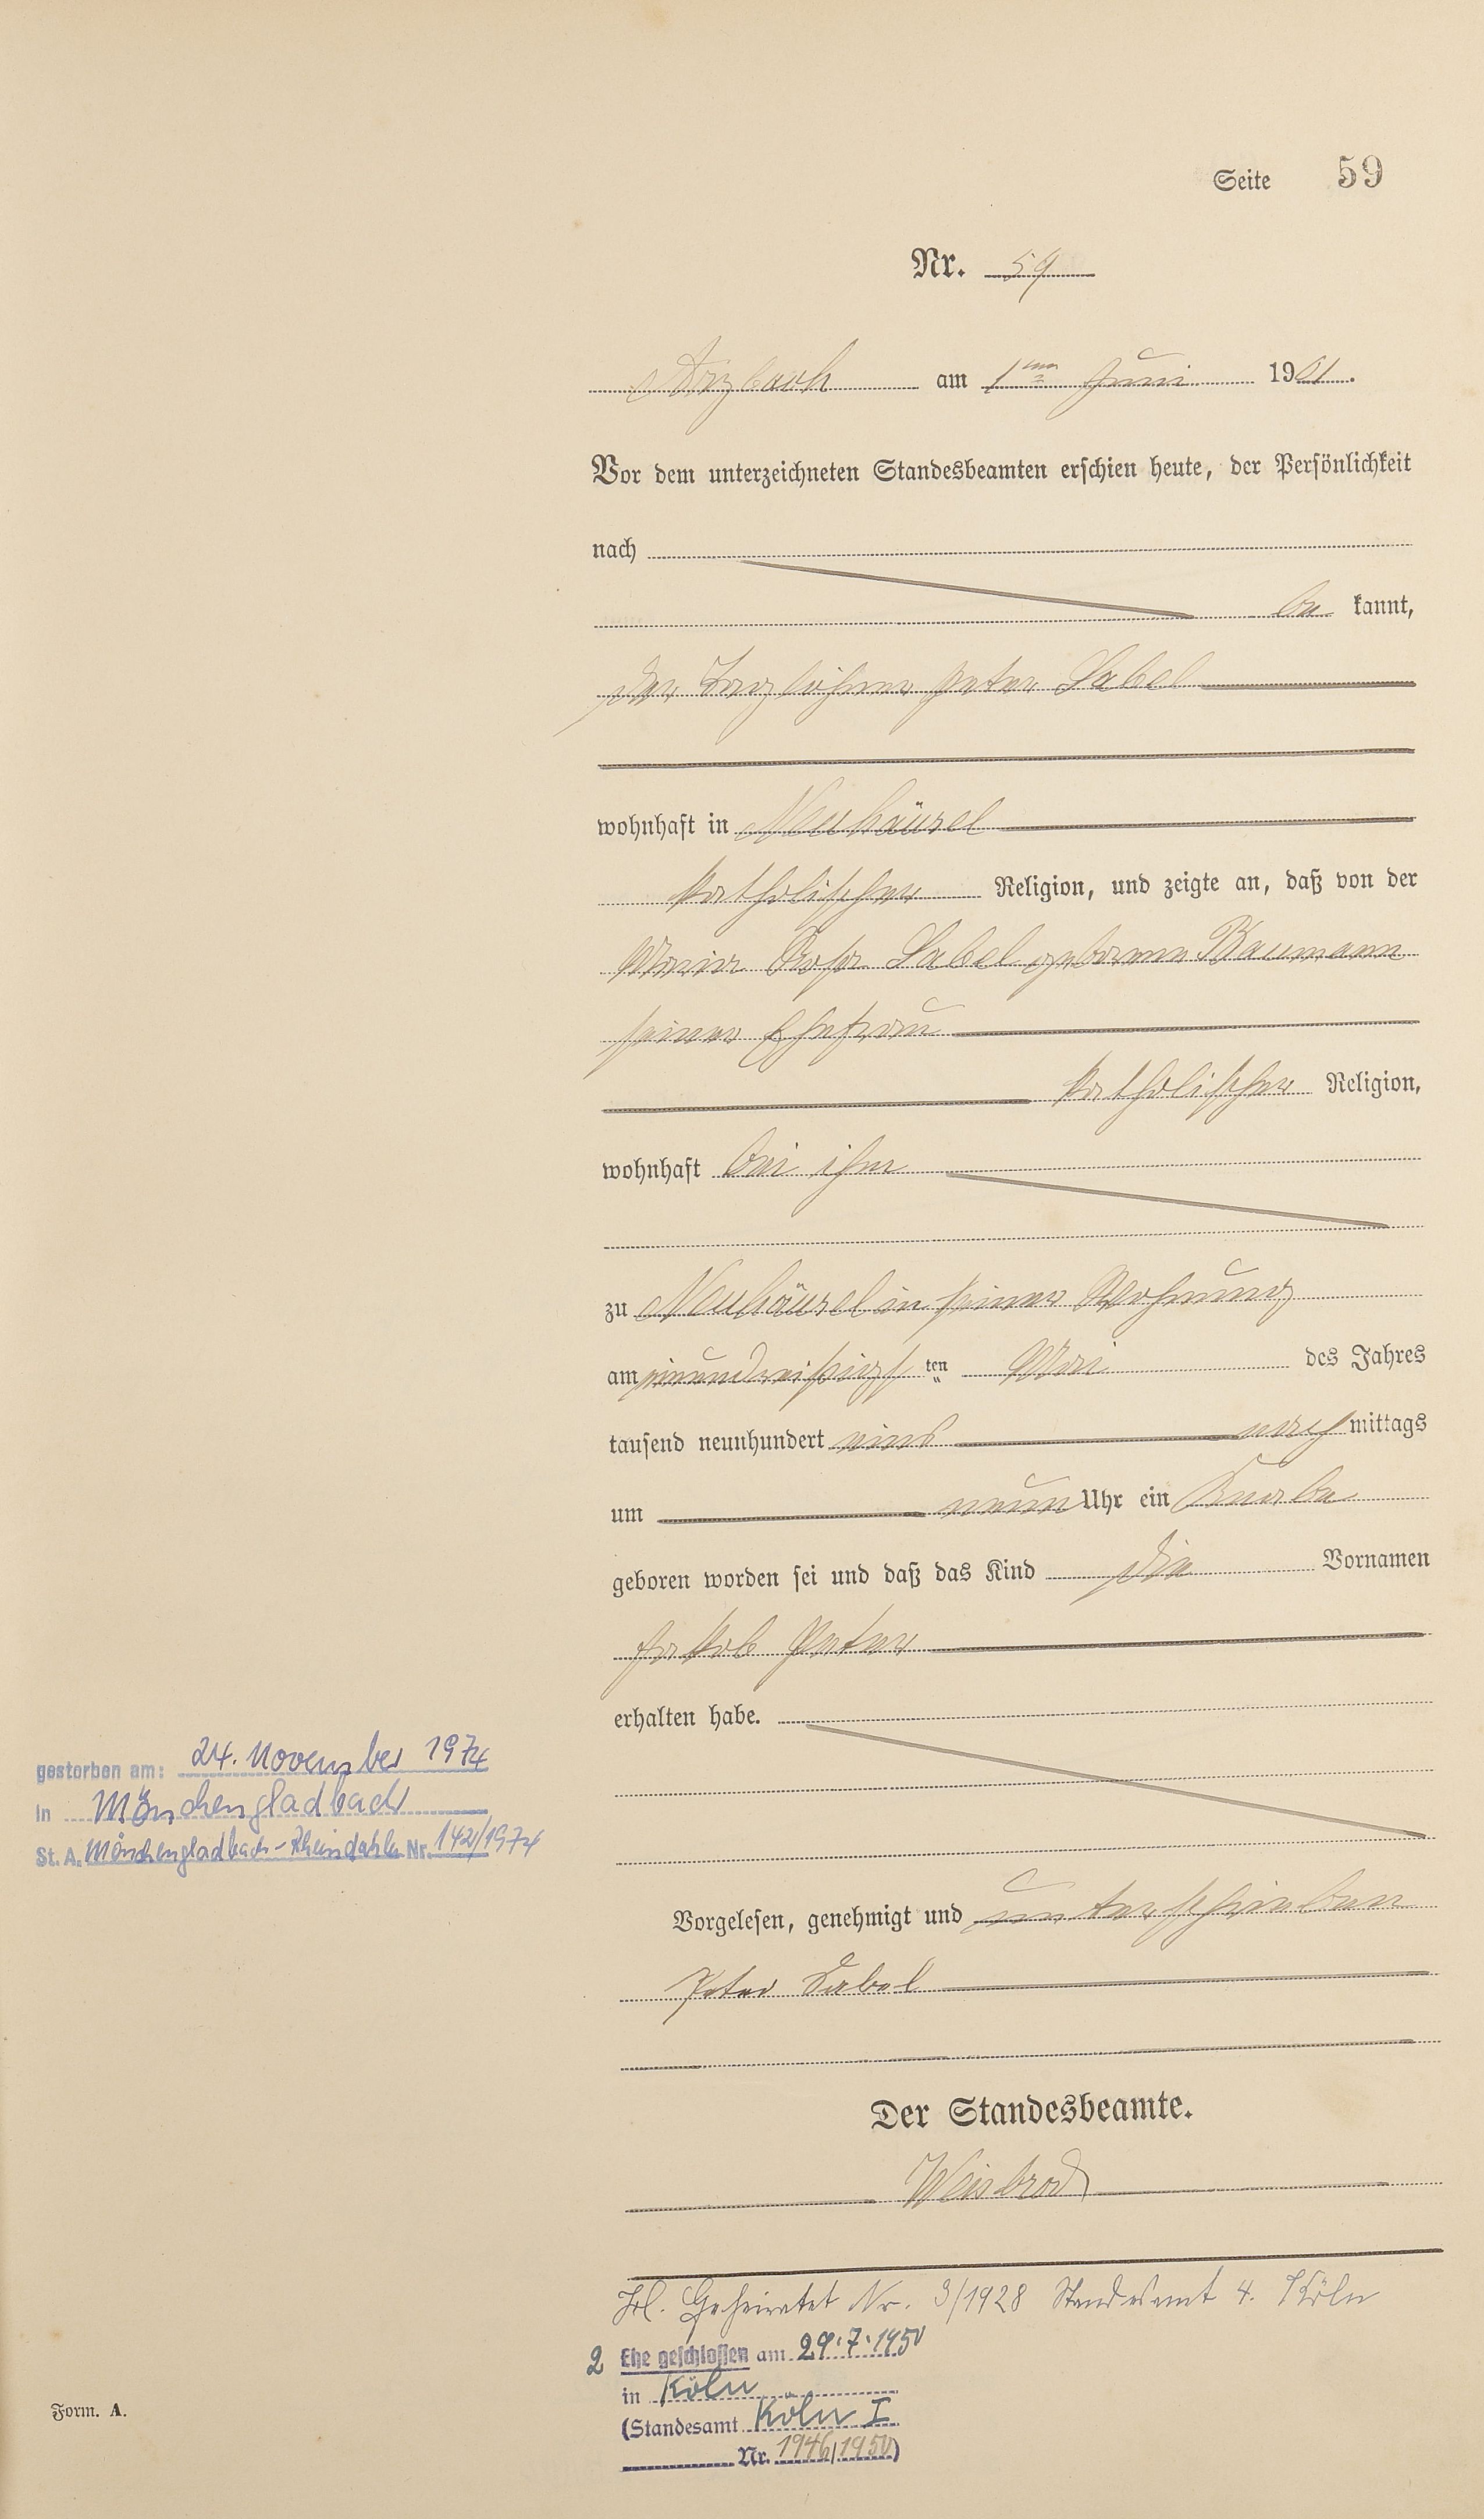 Seite 59
Nr. 59
Arzbach am 1ten Juni 1901.
Vor dem unterzeichneten Standesbeamten erschien heute, der Persönlichkeit
nach
be kannt,
der Taglöhner Peter Label
wohnhaft in Neuhäusel
katholischer Religion, und zeigte an, daß von der
Maria Rosa Label geborene Baumann
seiner Ehefrau
katholischer Religion,
wohnhaft bei ihm
zu Neuhäusel in seiner Wohnung
am einunddreißigsten Mai des Jahres
tausend neunhundert eins nach mittags
um neun Uhr ein Knabe
geboren worden sei und daß das Kind die Vornamen
Jakob Peter
erhalten habe.
gestorben am: 24. November 1974
in Mönchengladbach
St. A. Mönchengladbach-Rheindahlen Nr. 142/1974
Vorgelesen, genehmigt und unterschrieben
Peter Label
Der Standesbeamte.
Weisbrod
Geheiratet Nr. 3/1928 Standesamt 4. Köln
2 Ehe geschlossen am 29.7.1950
in Köln
(Standesamt Köln I
Nr. 1946/1950)
Form. A.